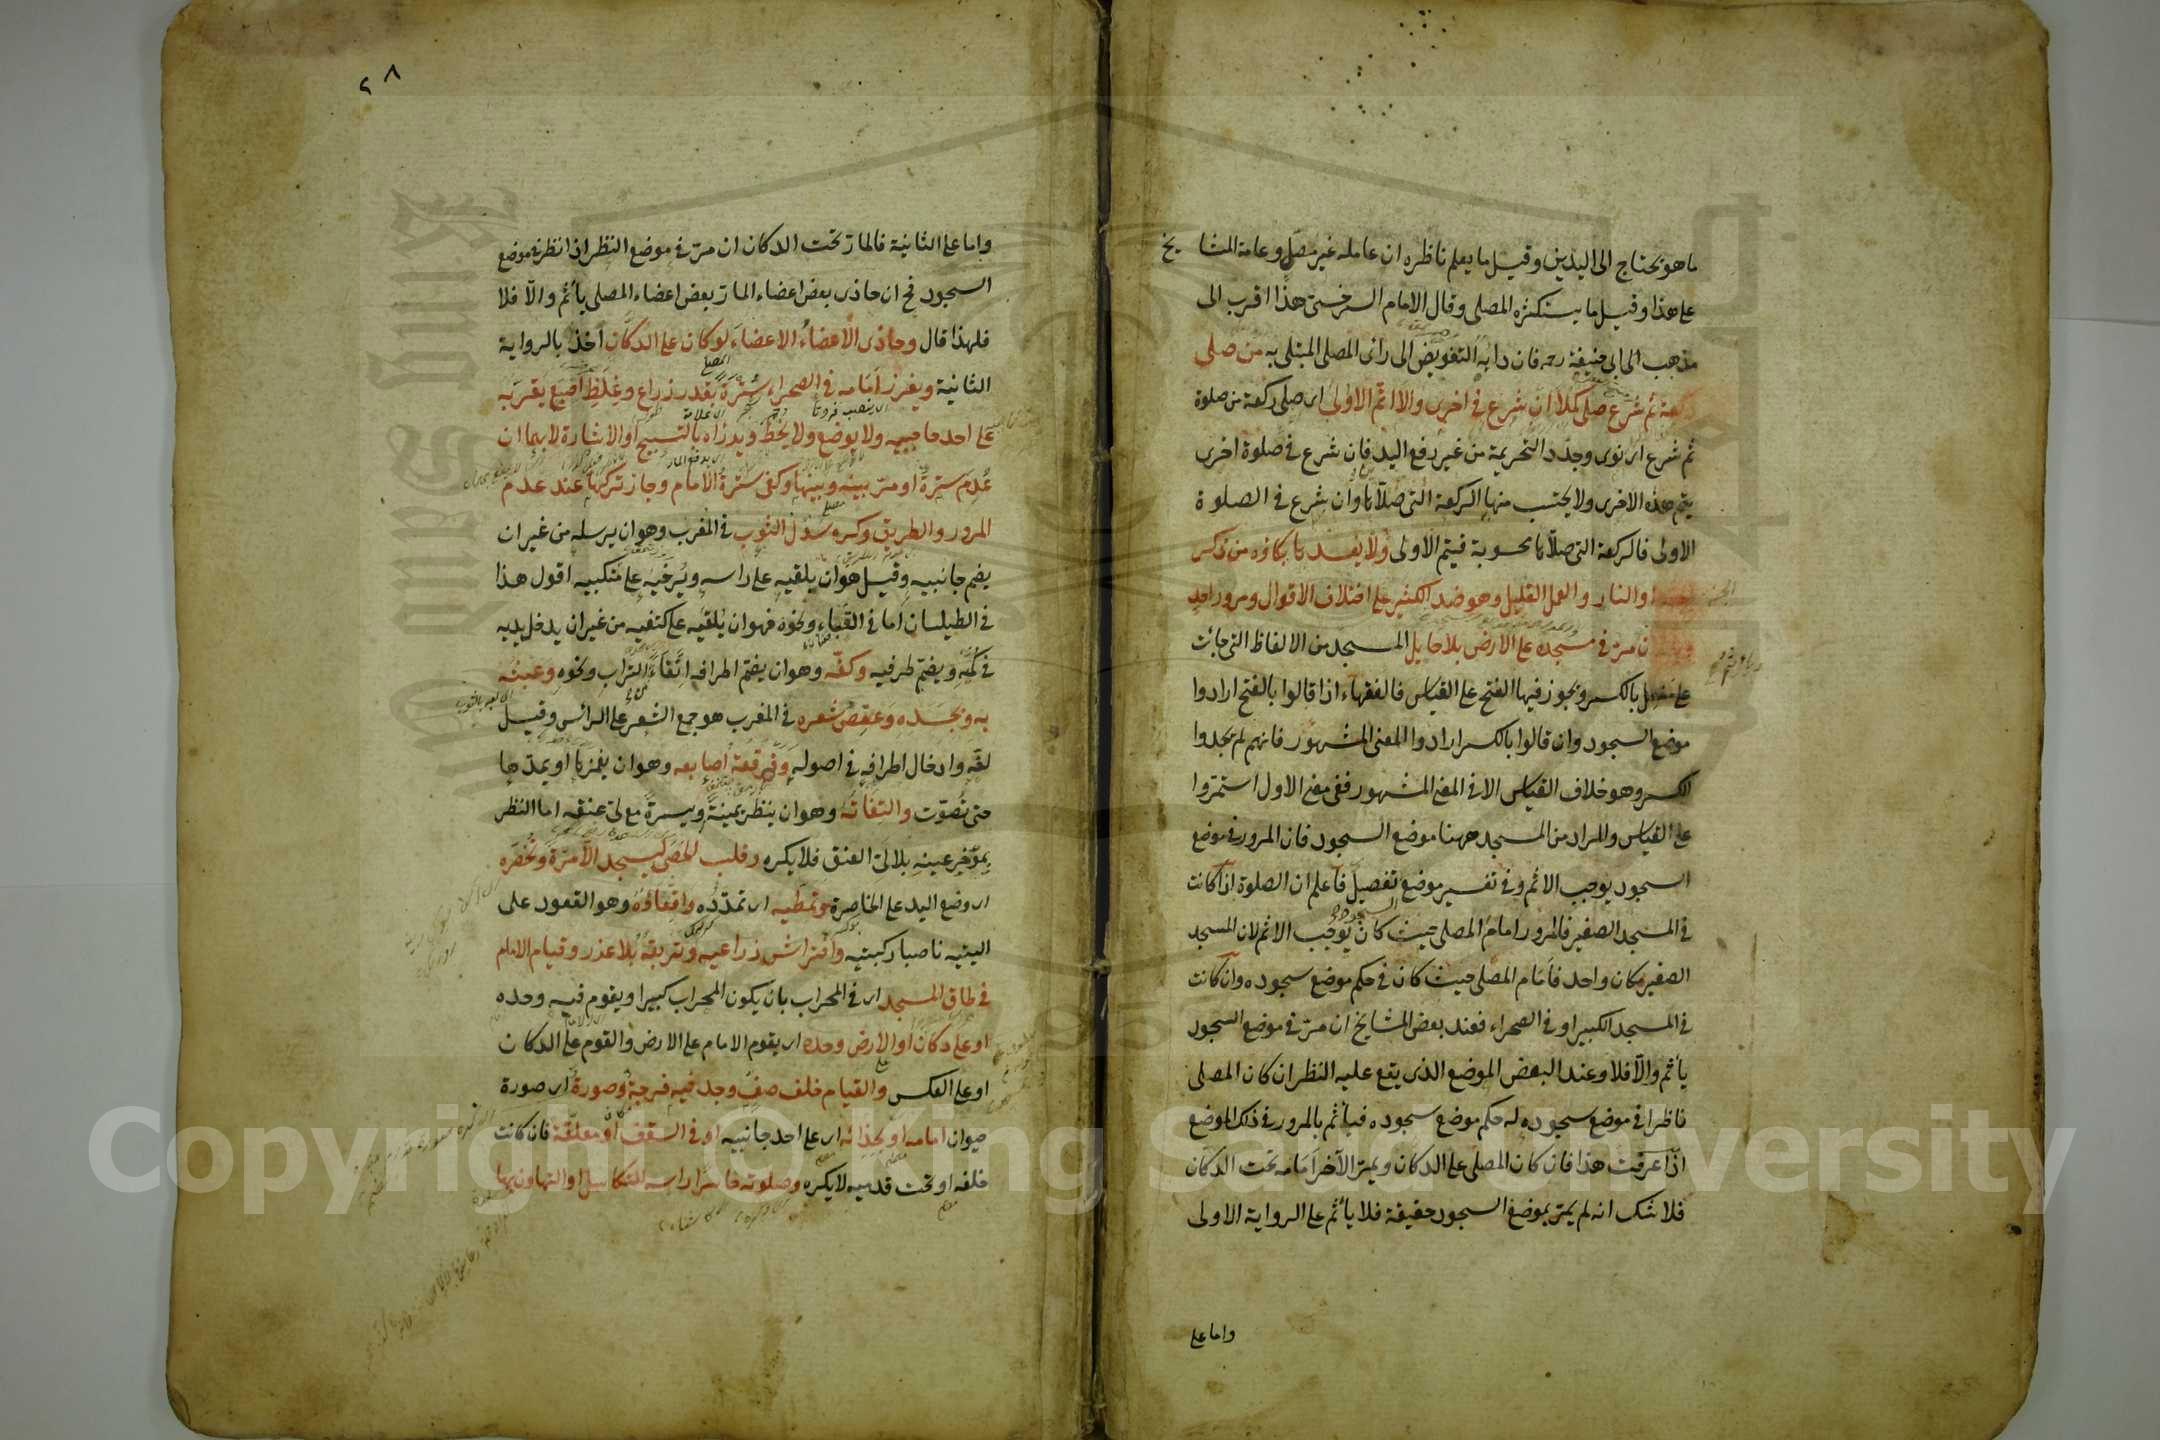 ما هو يحتاج الى اليدين وقيل ما يعلم ناظره ان عامله غير مصل وعامة المشايخ
على هذا وقيل ما يستكثره المصلى وقال الامام السرخسى هذا اقرب الى
مذهب ابى حنيفة رحمه فان دابه التفويض الى رأى المصلى المبتلى به من صلى
ركعة ثم شرع صلى كملا ان شرع فى اخرى والا اتم الاولى اى صلى ركعة من صلوة
ثم شرع اى نوى وجدد التحريمة من غير رفع اليد فان شرع فى صلوة اخرى
يتم هذه الاخرى ولا يحتسب منها الركعة التى صلاها وان شرع فى الصلوة
الاولى فالركعة التى صلاها محسوبة فيتم الاولى ولا يفسدها بكاؤه من ذكر
او النار والعمل القليل وهو ضد الكثير على اختلاف الاقوال ومرور احد
ان مر فى مسجده على الارض بلا حايل المسجد من الالفاظ التى جائت
على مفعل بالكسر ويجوز فيها الفتح على القياس فالفقهاء اذا قالوا بالفتح ارادوا
موضع السجود وان قالوا بالكسر ارادوا المعنى المشهور فانهم لم يجدوا
الكسر وهو خلاف القياس الا فى المعنى المشهور ففى معنى الاول استمروا
على القياس والمراد من المسجد ههنا موضع السجود فان المرور فى موضع
السجود يوجب الاثم وفى تفسير موضع السجود تفصيل فاعلم ان الصلوة اذا كانت
فى المسجد الصغير فالمرور امام المصلى حيث كان يوجب الاثم لان المسجد
الصغير مكان واحد فامام المصلى حيث كان فى حكم موضع سجوده وان كانت
فى المسجد الكبير او فى الصحراء فعند بعض المشايخ ان مر فى موضع السجود
يأثم والا فلا وعند البعض الموضع الذى يقع عليه النظر ان كان المصلى
ناظرا فى موضع سجوده له حكم موضع سجوده فيأثم بالمرور فى ذلك الموضع
اذا عرفت هذا فان كان المصلى على الدكان ويمر الآخر امامه تحت الدكان
فلا شك انه لم يمر بموضع السجود حقيقة فلا يأثم على الرواية الاولى
واما على
٢٨
واما على الثانية فالمار تحت الدكان ان مر فى موضع النظر اذا نظر فى موضع
السجود فح ان حاذى بعض اعضاء المار بعض اعضاء المصلى يأثم والا فلا
فلهذا قال وحاذى الاعضاء الاعضاء لو كان على الدكان اخذ بالرواية
الثانية ويغرز امامه فى الصحراء سترة بقدر ذراع وغلظ اصبع بقربه
على احد حاجبيه ولا يوضع ولا يخط ويدرأه بالتسبيح او الاشارة لا بهما ان
عدم سترة او مر بينه وبينها وكفى سترة الامام وجاز تركها عند عدم
المرور والطريق وكره سدل الثوب فى المغرب وهو ان يرسله من غير ان
يضم جانبيه وقيل هو ان يلقيه على راسه ويرخيه على منكبيه اقول هذا
فى الطيلسان اما فى القباء ونحوه فهو ان يلقيه على كتفيه من غير ان يدخل يديه
فى كمه ويضم طرفيه وكفه وهو ان يضم اطرافه اتقاء التراب ونحوه وعبثه
به وبجسده وعقص شعره فى المغرب هو جمع الشعر على الرأس وقيل
لفه وادخال اطرافه فى اصوله وفرقعة اصابعه وهو ان يغمزها او يمدها
حتى تصوت والتفاته وهو ان ينظر يمنة ويسرة مع لى عنقه اما النظر
بمؤخر عينيه بلا لى العنق فلا يكره وقلب الحصى ليسجد الا مرة وتخصره
اى وضع اليد على الخاصرة وتمطيه اى تمدده واقعاؤه وهو القعود على
اليتيه ناصبا ركبتيه وافتراش ذراعيه وتربعه بلا عذر وقيام الامام
فى طاق المسجد اى فى المحراب بان يكون المحراب كبيرا ويقوم فيه وحده
او على دكان او الارض وحده اى يقوم الامام على الارض والقوم على الدكان
او على العكس والقيام خلف صف وجد فيه فرجة وصورة اى صورة
حيوان امامه او بحذائه اى على احد جانبيه او فى السقف او معلقة فان كانت
خلفه او تحت قدميه لا يكره وصلوته حاسرا راسه للتكاسل او التهاون بها
Copyright © King Saud University